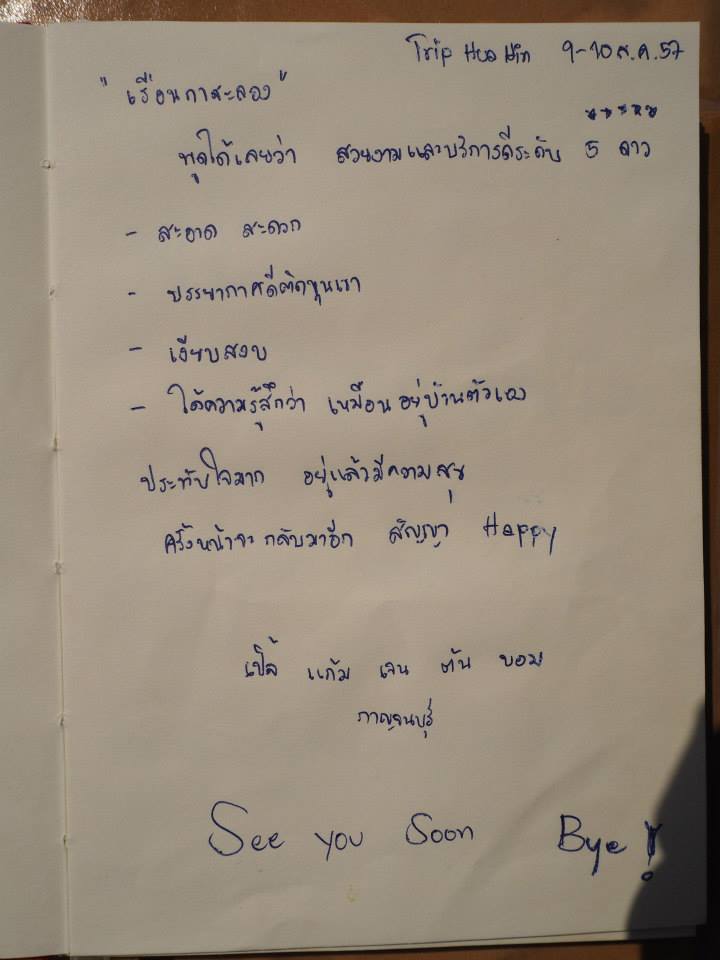 Trip Hua Hin 9-10 ส.ค. 57
"เรือนกาสะลอง"
พูดได้เลยว่า สวยงามและบริการดีระดับ 5 ดาว
- สะอาด สะดวก
- บรรยากาศดีติดขุนเขา
- เงียบสงบ
- ได้ความรู้สึกว่า เหมือนอยู่บ้านตัวเอง
ประทับใจมาก อยู่แล้วมีความสุข
ครั้งหน้าจะกลับมาอีก สัญญา Happy
เปิ้ล แก้ม เจน ต้น บอม
กาญจนบุรี
See you Soon Bye!